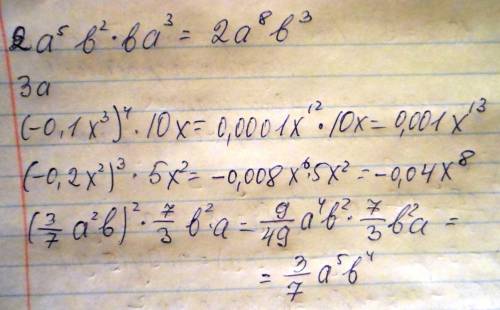 2a⁵b²·ba³ = 2a⁸b³
3a
(-0,1x³)⁴·10x = 0,0001x¹²·10x = 0,001x¹³
(-0,2x²)³·5x² = -0,008x⁶·5x² = -0,04x⁸
(3/7 a²b)²·7/3 b²·a = 9/49 a⁴b²·7/3 b²a =
= 3/7 a⁵b⁴